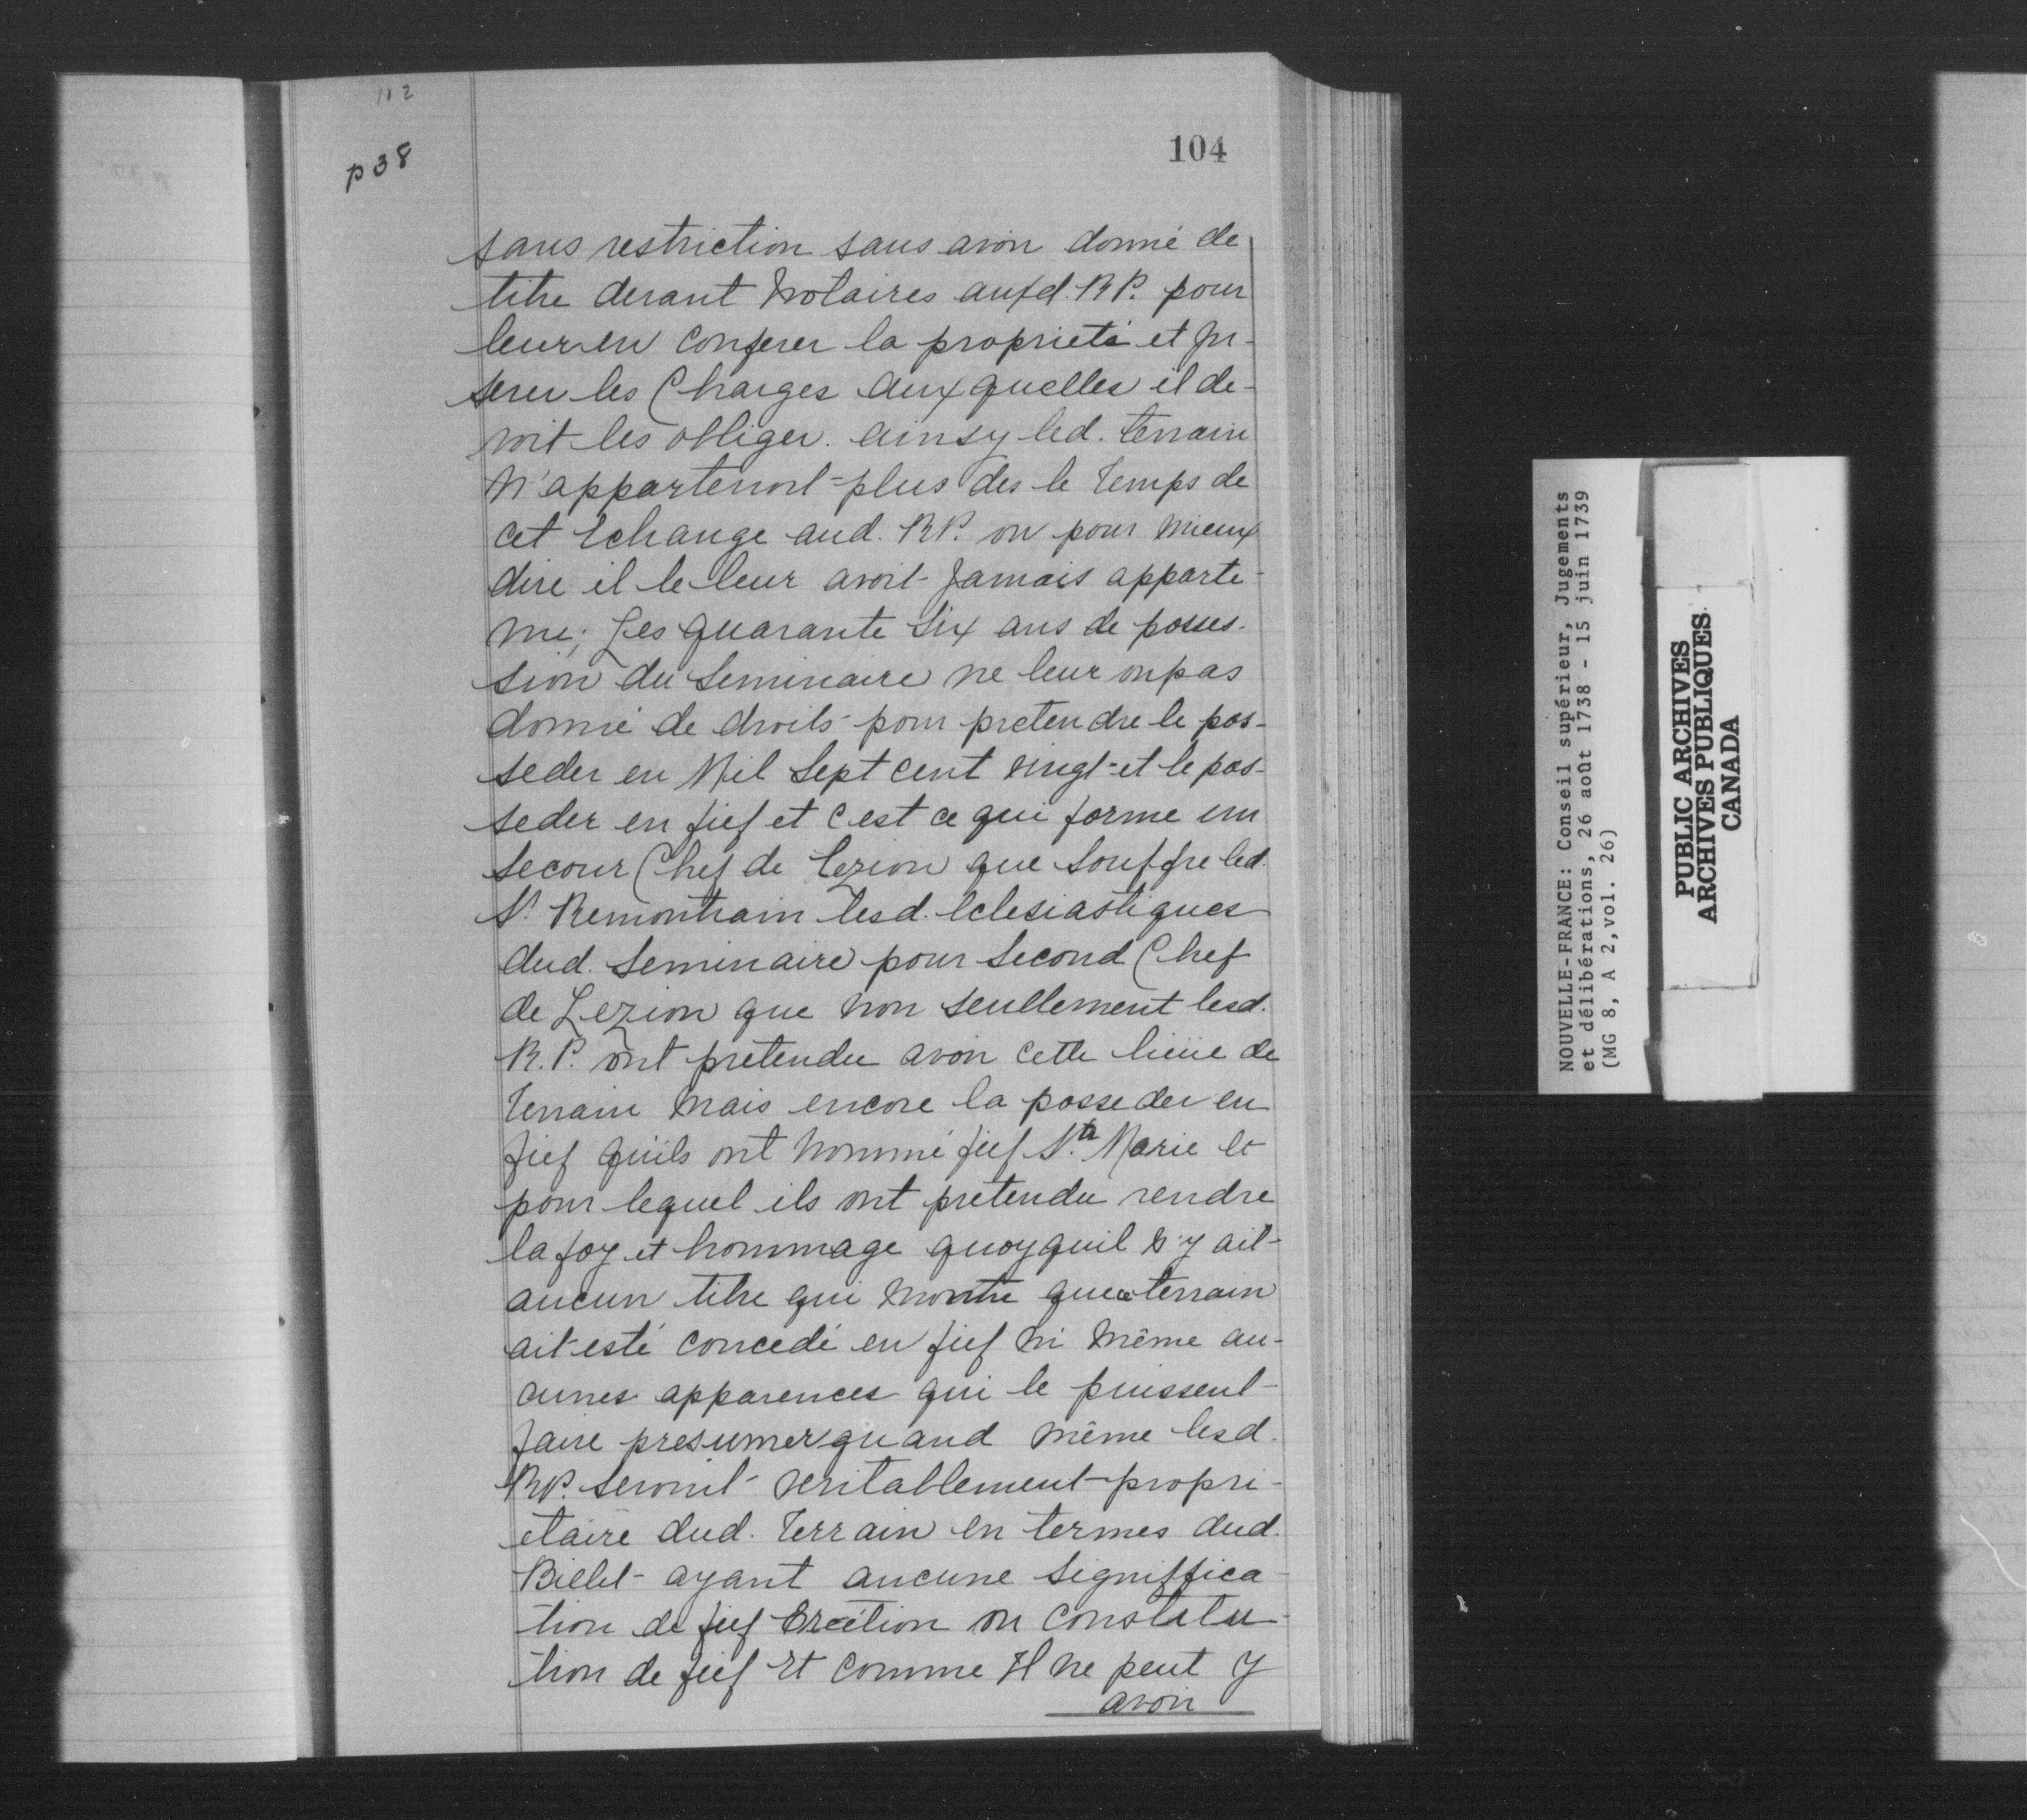 112
p 38
104
sans restriction sans avoir donné de
titre devant Notaires auxd. RP. pour
leur en conferer la proprieté et In-
serer les Charges auxquelles il de-
voit les obliger. ainsy led. terrain
N'appartenoit plus des le temps de
cet Echange aud. RP. ou pour mieux
dire il le leur avoit Jamais apparte-
nu; Les quarante Six ans de posses-
sion du Seminaire ne leur on pas
donné de droits pour pretendre le pos-
seder en Mil Sept cent vingt et le pos-
seder en fief et c'est ce qui forme un
secour Chef de Lezion que souffre led.
Sr. Remontrain lesd. Eclesiastiques
dud. Seminaire pour Second Chef
de Lezion que non seullement lesd.
R.P. ont pretendu avoir cette lieüe de
terrain Mais encore la posseder en
fief qu'ils ont nommé fief Ste. Marie et
pour lequel ils ont pretendu rendre
la foy et hommage quoyquil N'y ait
aucun titre qui Montre que ce terrain
ait esté concedé en fief ni même au-
cunes apparences qui le puissent
faire presumer quand même lesd.
RP. seroint veritablement propri-
etaire dud. terrain en termes dud.
Billet ayant aucune Signiffica-
tion de fief Erection ou Constitu-
tion de fief Et comme Il ne peut y
avoir
NOUVELLE-FRANCE: Conseil supérieur, Jugements
et délibérations, 26 août 1738 - 15 juin 1739
(MG 8, A 2, vol. 26)
PUBLIC ARCHIVES
ARCHIVES PUBLIQUES
CANADA